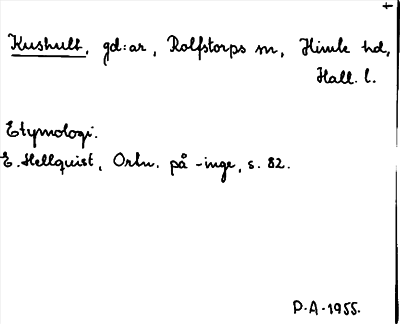 Kushult, gd:ar, Rolfstorps sn, Himle hd,
Hall. l.
Etymologi.
E. Hellquist, Ortn. på -inge, s. 82.
P.A. 1955.